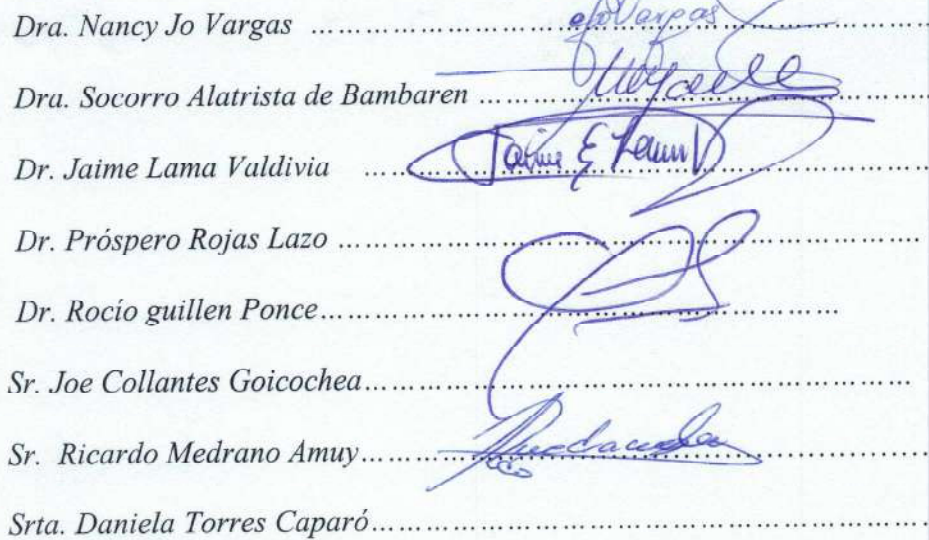 Dra. Nancy Jo Vargas ........................ Vargas
Dra. Socorro Alatrista de Bambaren ........................
Dr. Jaime Lama Valdivia ........................ Jaime E Lama V
Dr. Próspero Rojas Lazo ........................
Dr. Rocío guillen Ponce ........................
Sr. Joe Collantes Goicochea ........................
Sr. Ricardo Medrano Amuy ........................
Srta. Daniela Torres Caparó ........................